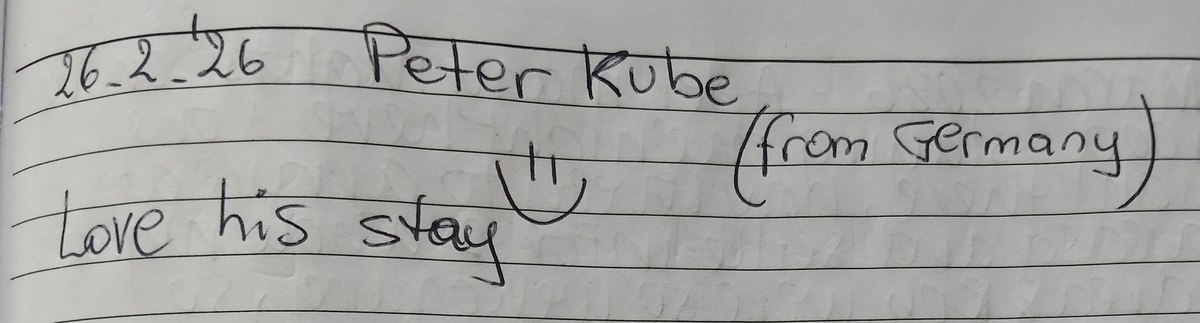 26-2-'26 Peter Kube
(from Germany)
Love his stay